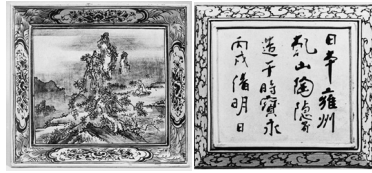 日本雍州
乾山陶隠
造于時寶永
丙戌清明日